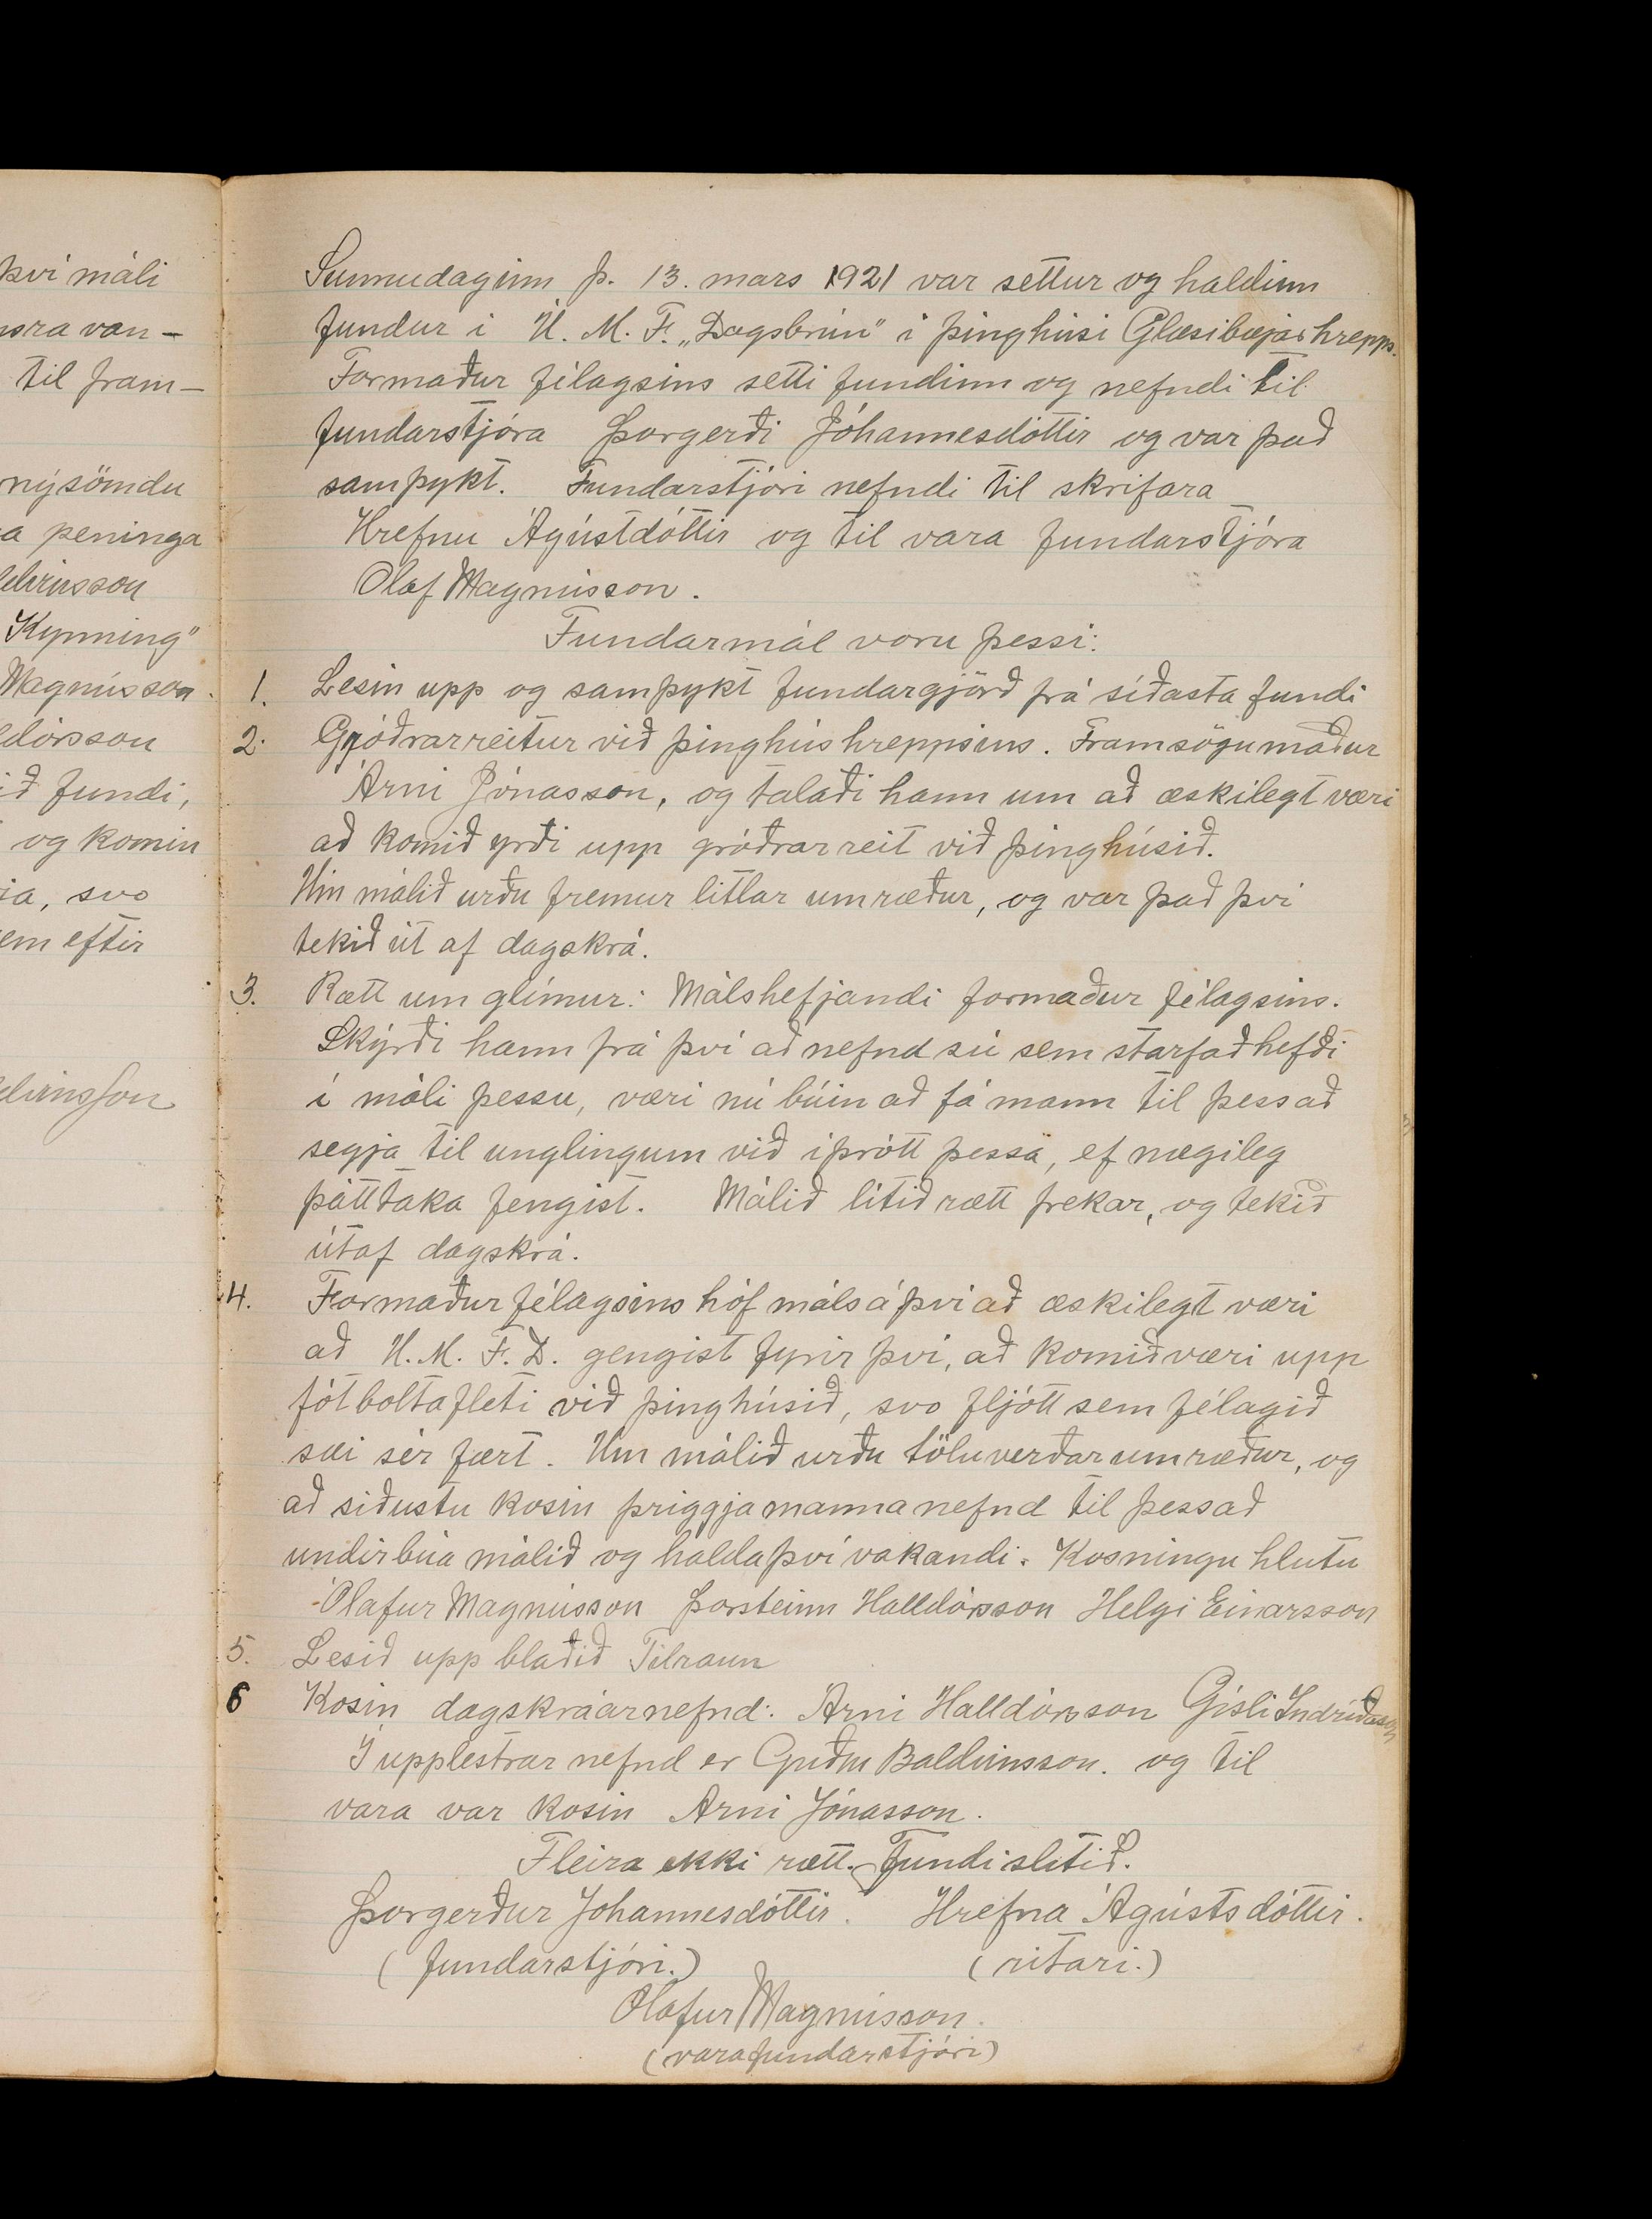 því máli
nsra van-
til fram-
nýsömdu
a peninga
Kynning"
Magnússon.
ldórsson
ið fundi,
og komin
ia, svo
em eftir
Sunnudaginn þ. 13. mars 1921 var settur og haldinn
fundur i U. M. F. „Dagsbrún" i þinghúsi Glæsibæjarhrepps.
Formaður félagsins setti fundinn og nefndi til
fundarstjóra Þorgerði Jóhannesdóttir og var það
samþykt. Fundarstjóri nefndi til skrifara
Hrefnu Ágústdóttir og til vara fundarstjóra
Olaf Magnússon.
Fundarmál voru þessi:
1. Lesin upp og samþykt fundargjörð frá síðasta fundi
2. Gróðrarreitur við þinghús hreppsins. Framsögumaður
Árni Jónasson, og talaði hann um að æskilegt væri
að komið yrði upp gróðrarreit við þinghúsið.
Um málið urðu fremur litlar umræður, og var það því
tekið út af dagskrá.
3. Rætt um glímur: Málshefjandi formaður félagsins.
Skýrði hann frá því að nefnd sú sem starfað hefði
í máli þessu, væri nú búin að fá mann til þess að
segja til unglingum við íþrótt þessa, ef nægileg
þátttaka fengist. Málið lítið rætt frekar, og tekið
útaf dagskrá.
4. Formaður félagsins hóf máls á því að æskilegt væri
að U. M. F. D. gengist fyrir því, að komið væri upp
fótboltafleti við þinghúsið, svo fljótt sem félagið
sæi sér fært. Um málið urðu töluverðar umræður, og
að síðustu kosin þriggja manna nefnd til þess að
undirbúa málið og halda því vakandi. Kosningu hlutu
Ólafur Magnússon Þorsteinn Halldórsson Helgi Einarsson
5. Lesið upp blaðið Tilraun
6 Kosin dagskráarnefnd: Arni Halldórsson Gísli Indriðason
I upplestrar nefnd er Guðm Baldvinsson. og til
vara var kosin Arni Jónasson.
Fleira ekki rætt. Fundi slitið.
Þorgerður Jóhannesdóttir. Hrefna Ágústsdóttir.
(fundarstjóri.) (ritari.)
Olafur Magnússon.
(varafundarstjóri)